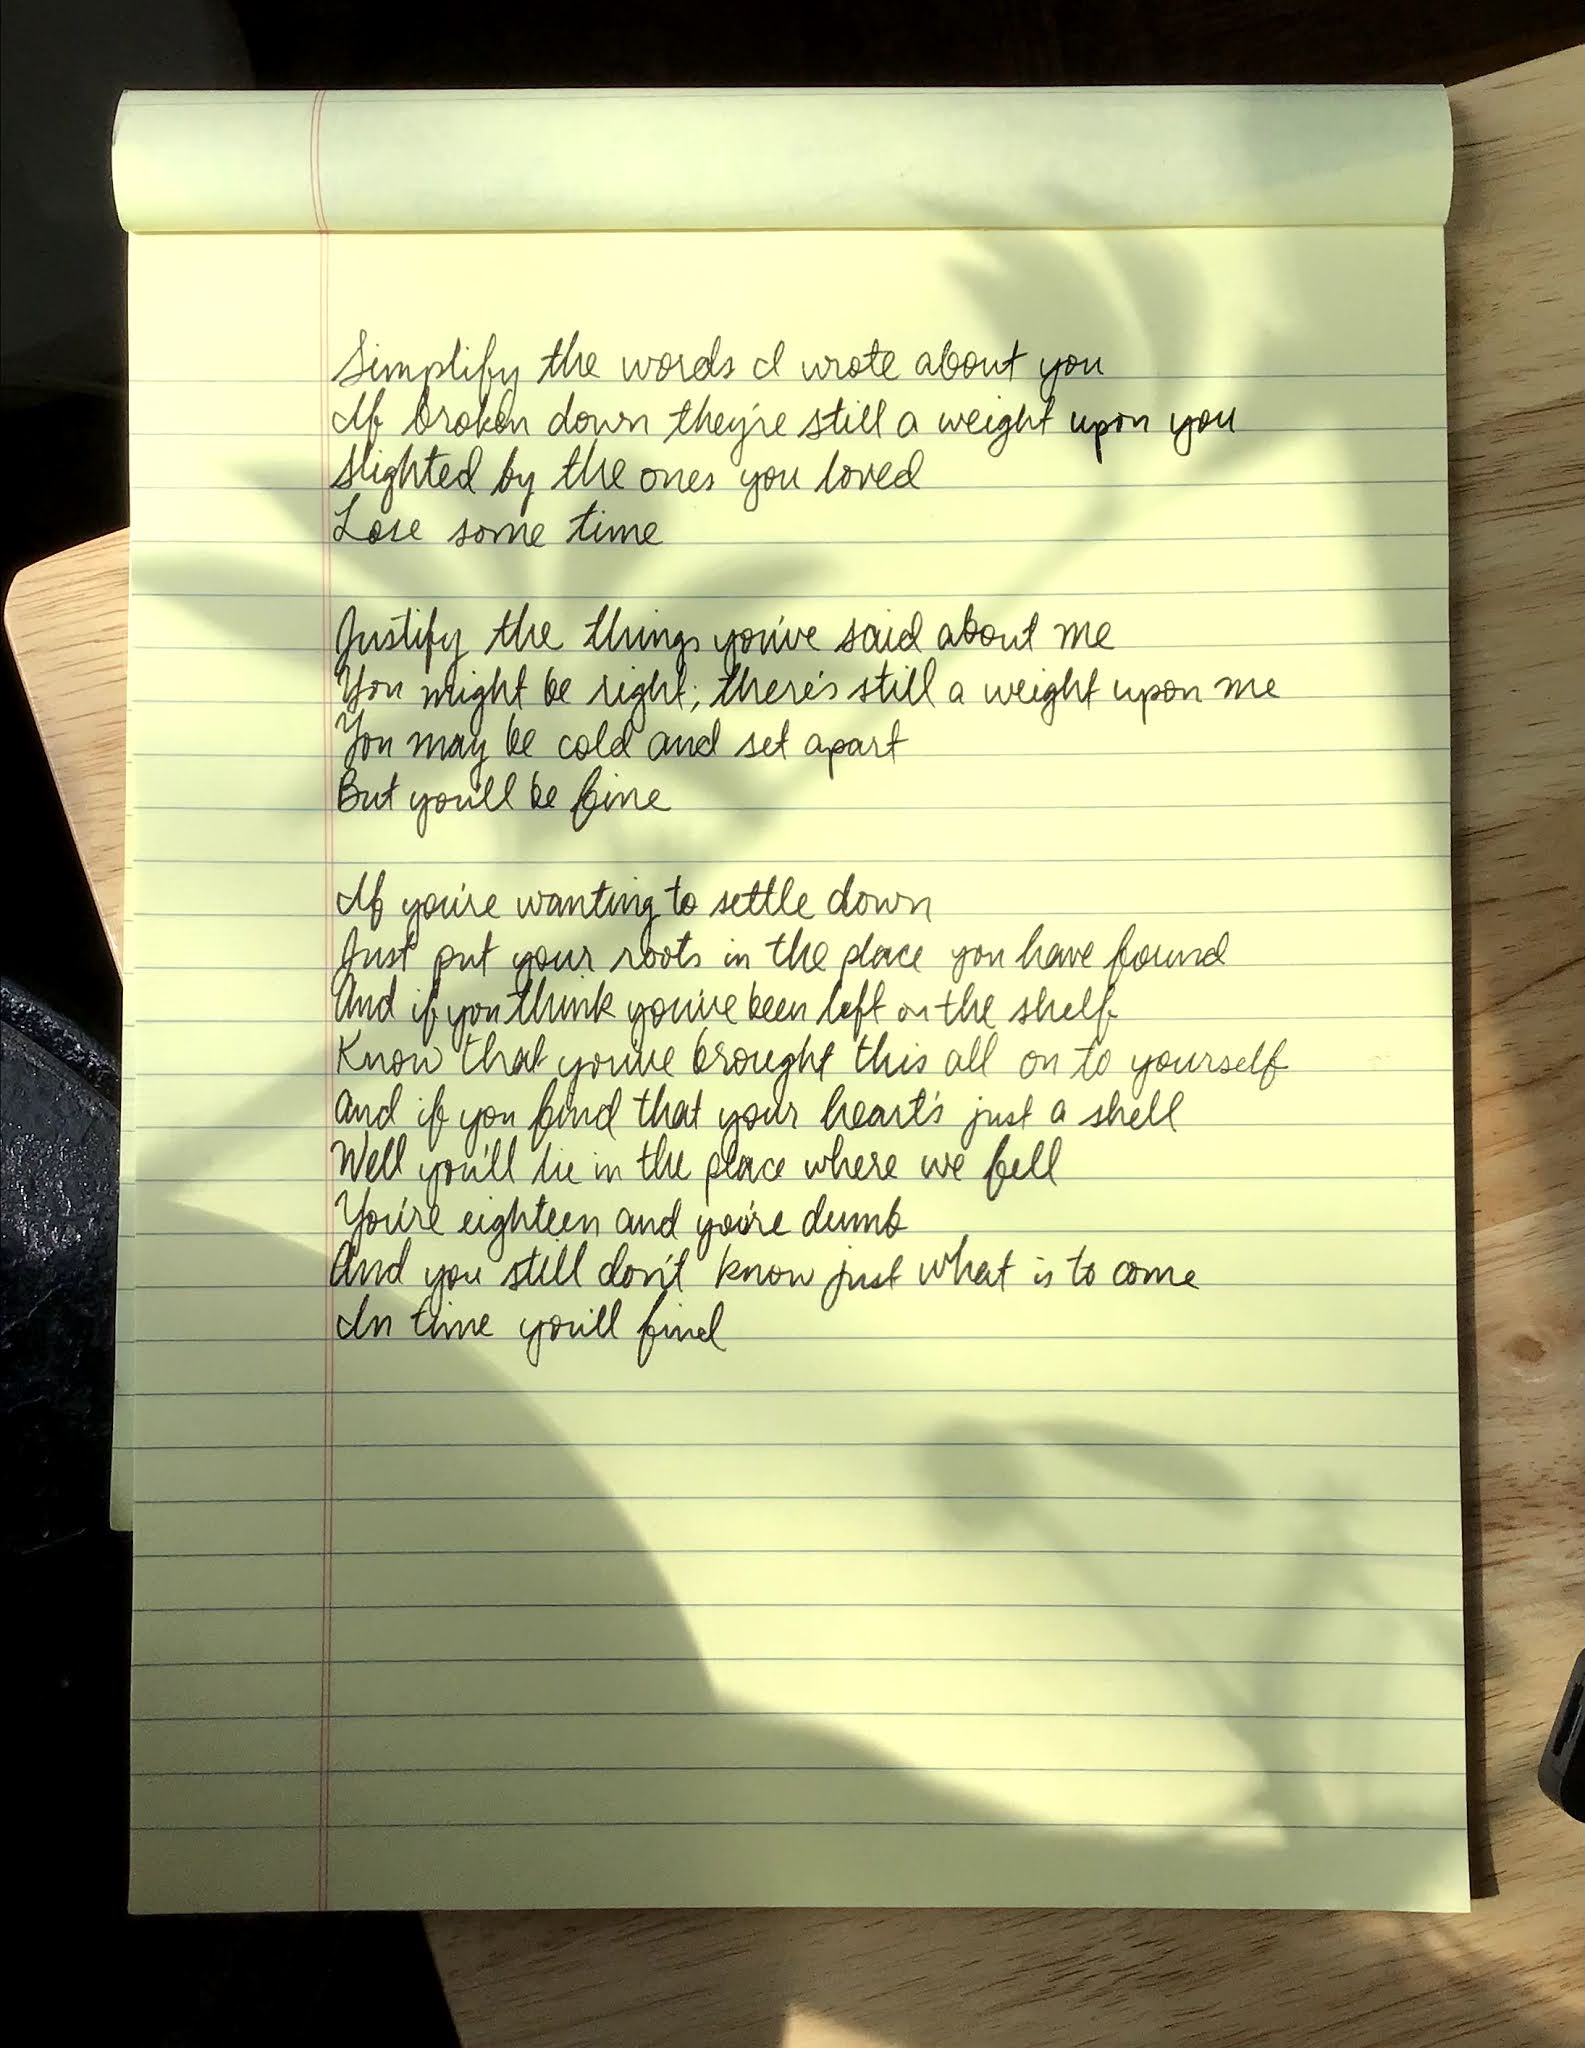 Simplify the words I wrote about you
If broken down they're still a weight upon you
Slighted by the ones you loved
Lose some time
Justify the things you've said about me
You might be right; there's still a weight upon me
You may be cold and set apart
But you'll be fine
If you're wanting to settle down
Just put your roots in the place you have found
And if you think you've been left on the shelf
Know that you've brought this all on to yourself
And if you find that your heart's just a shell
Well you'll lie in the place where we fell
You're eighteen and you're dumb
And you still don't know just what is to come
In time you'll find